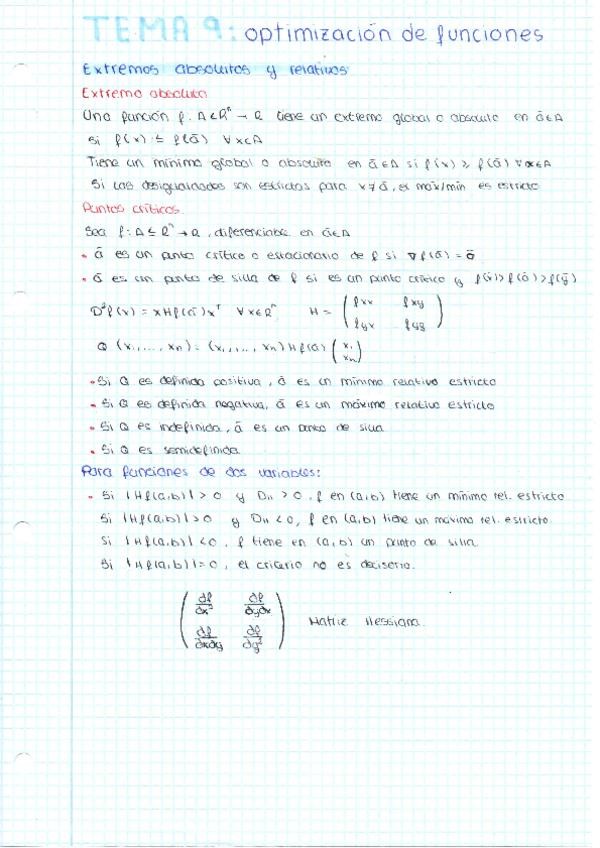 TEMA 9: optimización de funciones
Extremos absolutos y relativos
Extremo absoluto
Una función f: A⊆Rⁿ → R tiene un extremo global o absoluto en ā∈A
si f(x) ≤ f(ā) ∀x∈A
Tiene un mínimo global o absoluto en ā∈A si f(x) ≥ f(ā) ∀x∈A
Si las desigualdades son estrictas para x≠ā, el máx/min es estricto
Puntos críticos
Sea f: A⊆Rⁿ→R, diferenciable en ā∈A
• ā es un punto crítico o estacionario de f si ∇f(ā) = ō
• ā es un punto de silla de f si es un punto crítico y f(x̄)>f(ā)>f(ȳ)
D²f(x) = xHf(ā)xᵀ ∀x∈Rⁿ H = ( fxx fxy
fyx fyy )
Q (x₁, ..., xₙ) = (x₁, ..., xₙ) Hf(ā) ( x₁
xₙ )
• Si Q es definida positiva, ā es un mínimo relativo estricto
• Si Q es definida negativa, ā es un máximo relativo estricto
• Si Q es indefinida, ā es un punto de silla
• Si Q es semidefinida
Para funciones de dos variables:
• Si |Hf(a,b)| > 0 y D₁₁ > 0, f en (a,b) tiene un mínimo rel. estricto
Si |Hf(a,b)| > 0 y D₁₁ < 0, f en (a,b) tiene un máximo rel. estricto
Si |Hf(a,b)| < 0, f tiene en (a,b) un punto de silla
Si |Hf(a,b)| = 0, el criterio no es decisorio.
( ∂f/∂x² ∂f/∂y∂x
∂f/∂x∂y ∂f/∂y² ) Matriz Hessiana